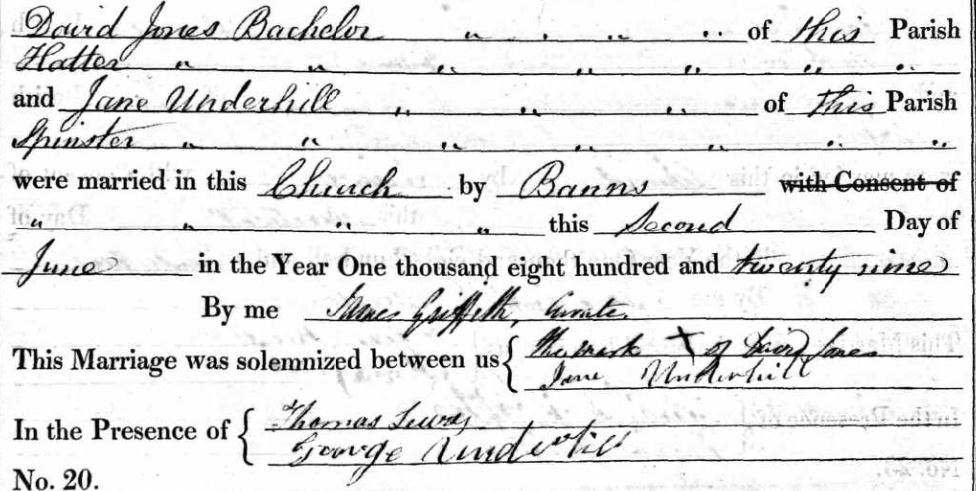 David Jones Bachelor " " " " of this Parish
Hatter " " " " " " "
and Jane Underhill " " " of this Parish
Spinster " " " " " " "
were married in this Church by Banns with Consent of
" " " " this Second Day of
June in the Year One thousand eight hundred and twenty nine
By me James Griffith, Curate.
This Marriage was solemnized between us { The mark X of David Jones
Jane Underhill
In the Presence of { Thomas
George Underhill
No. 20.